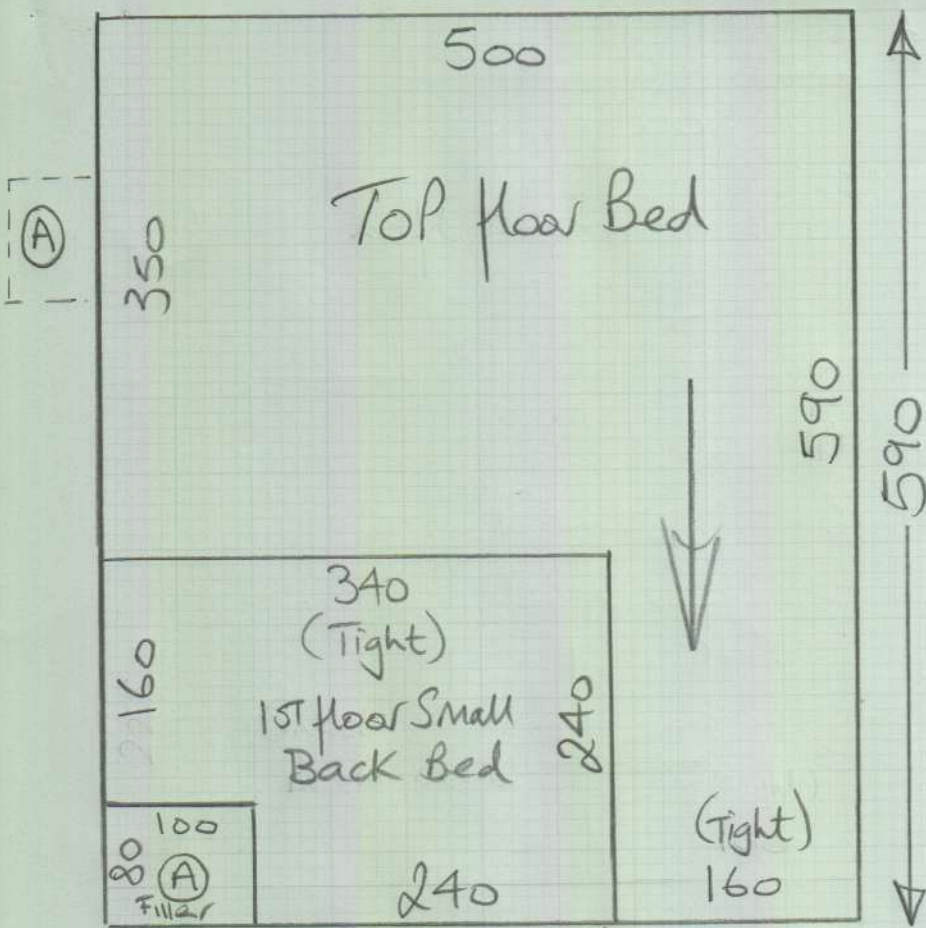 500
Top floor Bed
A
350
590
590
340
(Tight)
160
1st floor Small
Back Bed
240
100
80
A
Filler
240
(Tight)
160